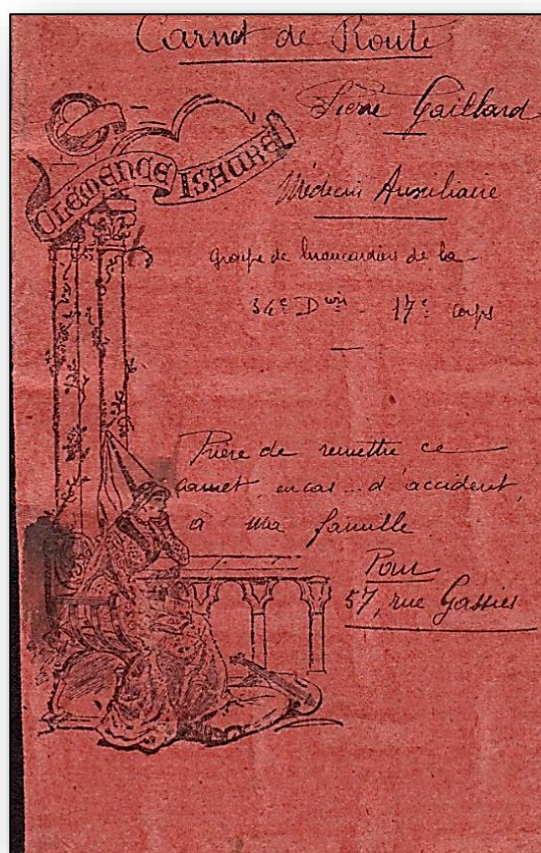 Carnet de Route
Pierre Gaillard
CLÉMENCE ISAURE
Médecin Auxiliaire
groupe de brancardiers de la
34e Don 17e corps
Prière de remettre ce
carnet, en cas... d'accident,
à ma famille
57, rue Gassies